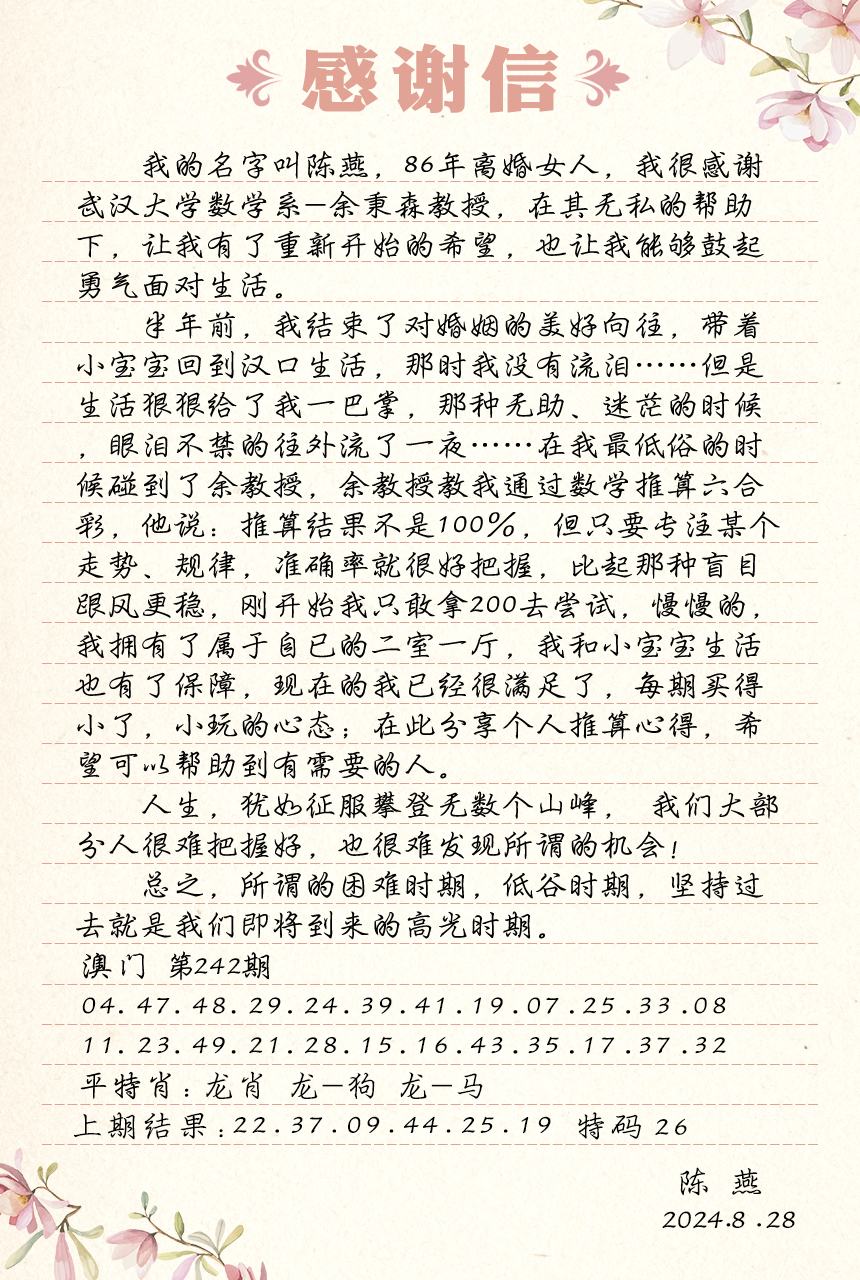 感谢信
我的名字叫陈燕，86年离婚女人，我很感谢
武汉大学数学系—余秉森教授，在其无私的帮助
下，让我有了重新开始的希望，也让我能够鼓起
勇气面对生活。
半年前，我结束了对婚姻的美好向往，带着
小宝宝回到汉口生活，那时我没有流泪……但是
生活狠狠给了我一巴掌，那种无助、迷茫的时候
，眼泪不禁的往外流了一夜……在我最低俗的时
候碰到了余教授，余教授教我通过数学推算六合
彩，他说：推算结果不是100%，但只要专注某个
走势、规律，准确率就很好把握，比起那种盲目
跟风更稳，刚开始我只敢拿200去尝试，慢慢的，
我拥有了属于自已的二室一厅，我和小宝宝生活
也有了保障，现在的我已经很满足了，每期买得
小了，小玩的心态；在此分享个人推算心得，希
望可以帮助到有需要的人。
人生，犹如征服攀登无数个山峰， 我们大部
分人很难把握好，也很难发现所谓的机会！
总之，所谓的困难时期，低谷时期，坚持过
去就是我们即将到来的高光时期。
澳门 第242期
04.47.48.29.24.39.41.19.07.25.33.08
11.23.49.21.28.15.16.43.35.17.37.32
平特肖：龙肖 龙—狗 龙—马
上期结果：22.37.09.44.25.19 特码 26
陈 燕
2024.8.28